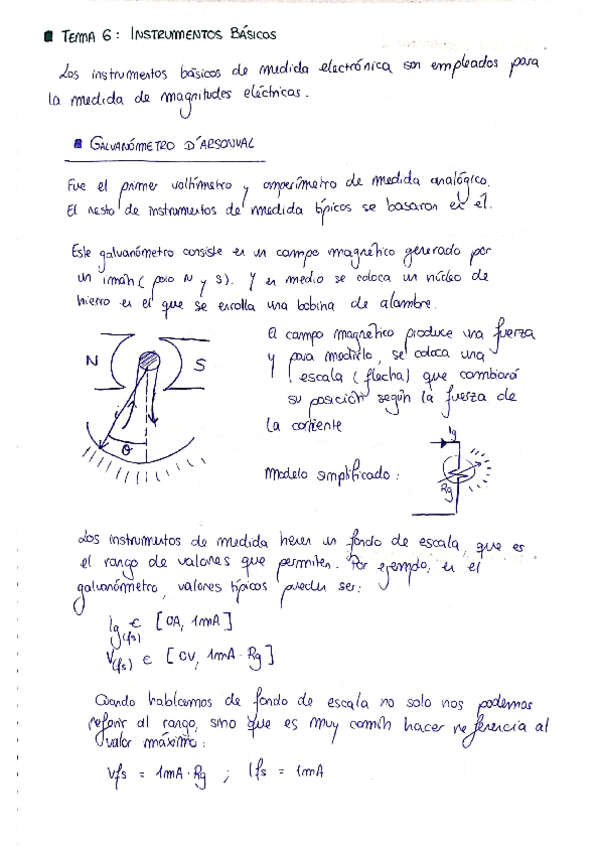 TEMA 6: INSTRUMENTOS BÁSICOS
Los instrumentos básicos de medida electrónica son empleados para
la medida de magnitudes eléctricas.
GALVANÓMETRO D'ARSONVAL
Fue el primer voltímetro y amperímetro de medida analógico.
El resto de instrumentos de medida típicos se basaron en él.
Este galvanómetro consiste en un campo magnético generado por
un imán (polo N y S). Y en medio se coloca un núcleo de
hierro en el que se enrolla una bobina de alambre.
N
S
θ
El campo magnético produce una fuerza
y para medirlo, se coloca una
escala (flecha) que cambiará
su posición según la fuerza de
la corriente
Modelo simplificado:
Ig
Rg
Los instrumentos de medida tienen un fondo de escala, que es
el rango de valores que permiten. Por ejemplo, en el
galvanómetro, valores típicos pueden ser:
Ig(fs) ∈ [0A, 1mA]
V(fs) ∈ [0V, 1mA·Rg]
Cuando hablamos de fondo de escala no solo nos podemos
referir al rango, sino que es muy común hacer referencia al
valor máximo:
Vfs = 1mA·Rg ; Ifs = 1mA